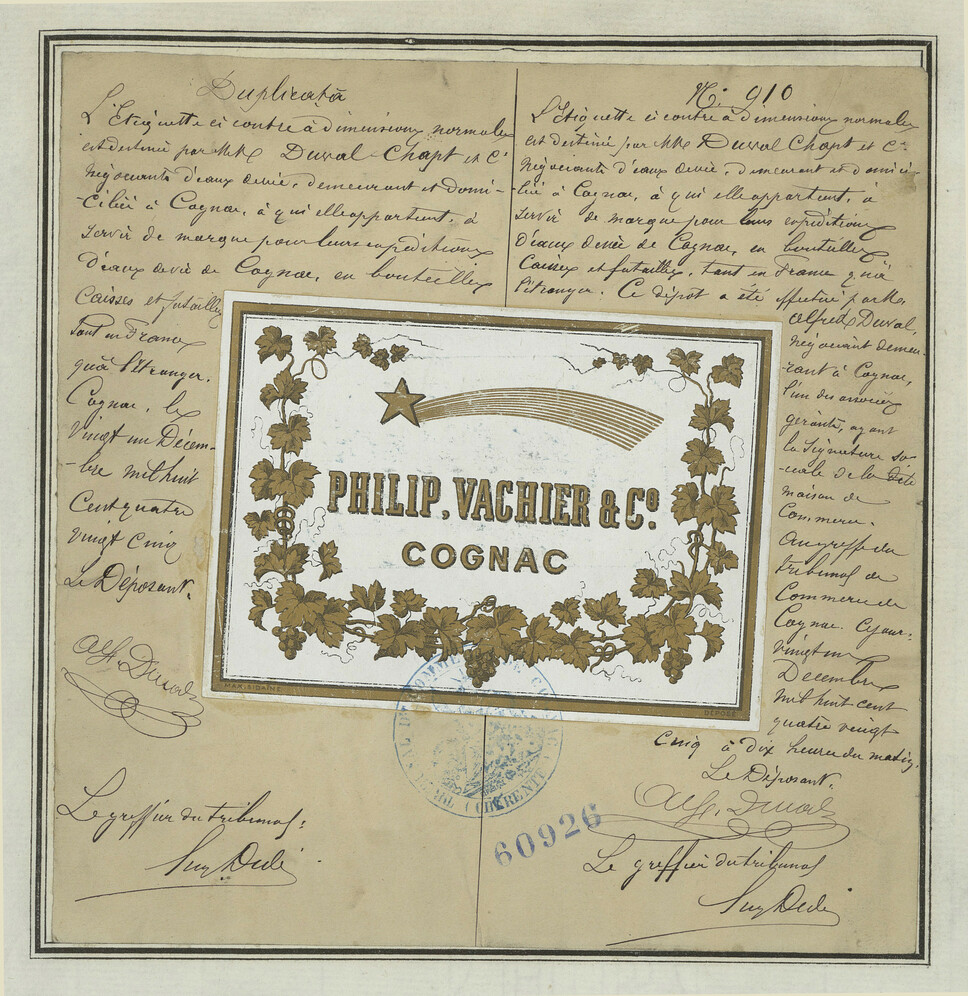 Duplicata
L'Etiquette ci contre à dimensions normales
est destinée par MM Duval-Chapt et Cie
négociants d'eaux devie, demeurant et domi-
-ciliés à Cognac, à qui elle appartient, à
servir de marque pour leurs expéditions
d'eaux devie de Cognac, en bouteilles
Caisses et futailles
tant en France
qu'à l'Etranger.
Cognac, le
vingt un Décem-
-bre mil huit
Cent quatre
vingt cinq
Le Déposant.
Alf. Duval
Le greffier du tribunal:
N: 910
L'Etiquette ci contre à dimensions normales
est destinée par MM Duval Chapt et Cie
négociants d'eaux devie, demeurant et domici-
-liés à Cognac, à qui elle appartient, à
servir de marque pour leurs expéditions
d'eaux devie de Cognac, en bouteilles
Caisses et futailles, tant en France qu'à
l'étranger. Ce dépot a été effectué par Mr
Alfred Duval,
négociant demeu-
-rant à Cognac,
l'un des associés
gérants, ayant
la Signature so-
-ciale de la dite
maison de
Commerce.
Au greffe du
tribunal de
Commerce de
Cognac. Ce jour:
vingt un
Décembre
mil huit cent
quatre vingt
Cinq à dix heures du matin.
Le Déposant.
Alf. Duval
Le greffier du tribunal
PHILIP, VACHIER & Co.
COGNAC
DÉPOSÉ
60926